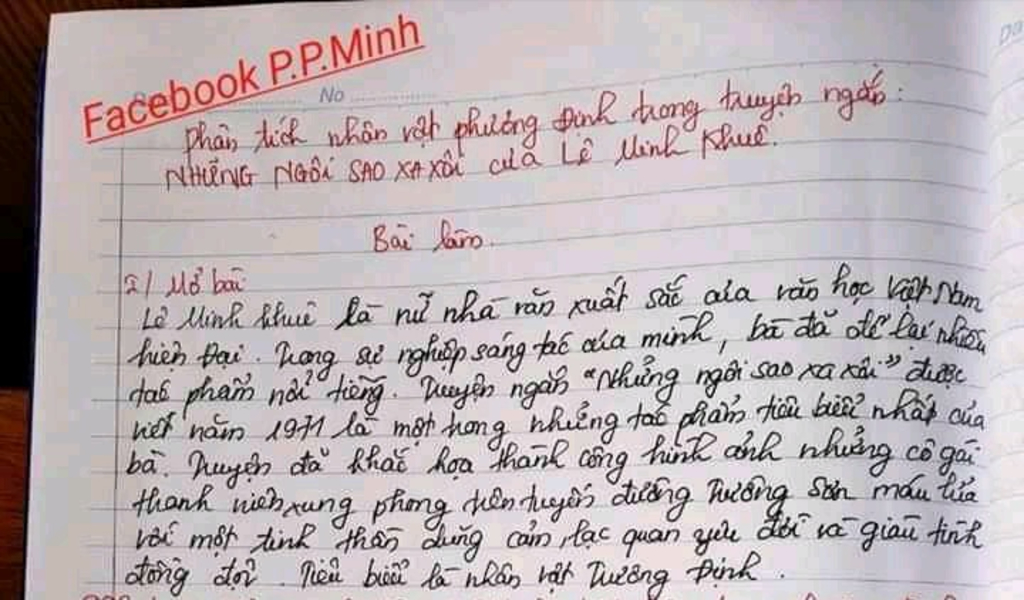 Facebook P.P.Minh
No
Phân tích nhân vật phương Định trong truyện ngắn:
NHỮNG NGÔI SAO XA XÔI của Lê Minh Khuê.
Bài làm.
I/ Mở bài
Lê Minh Khuê là nữ nhà văn xuất sắc của văn học Việt Nam
hiện Đại. Trong sự nghiệp sáng tác của mình, bà đã để lại nhiều
tác phẩm nổi tiếng. Truyện ngắn "Những ngôi sao xa xôi" được
viết năm 1971 là một trong những tác phẩm tiêu biểu nhất của
bà. Truyện đã khắc họa thành công hình ảnh những cô gái
thanh niên xung phong trên tuyến đường Trường Sơn máu lửa
với một tinh thần dũng cảm, lạc quan yêu đời và giàu tình
đồng đội. Tiêu biểu là nhân vật Trương Định.